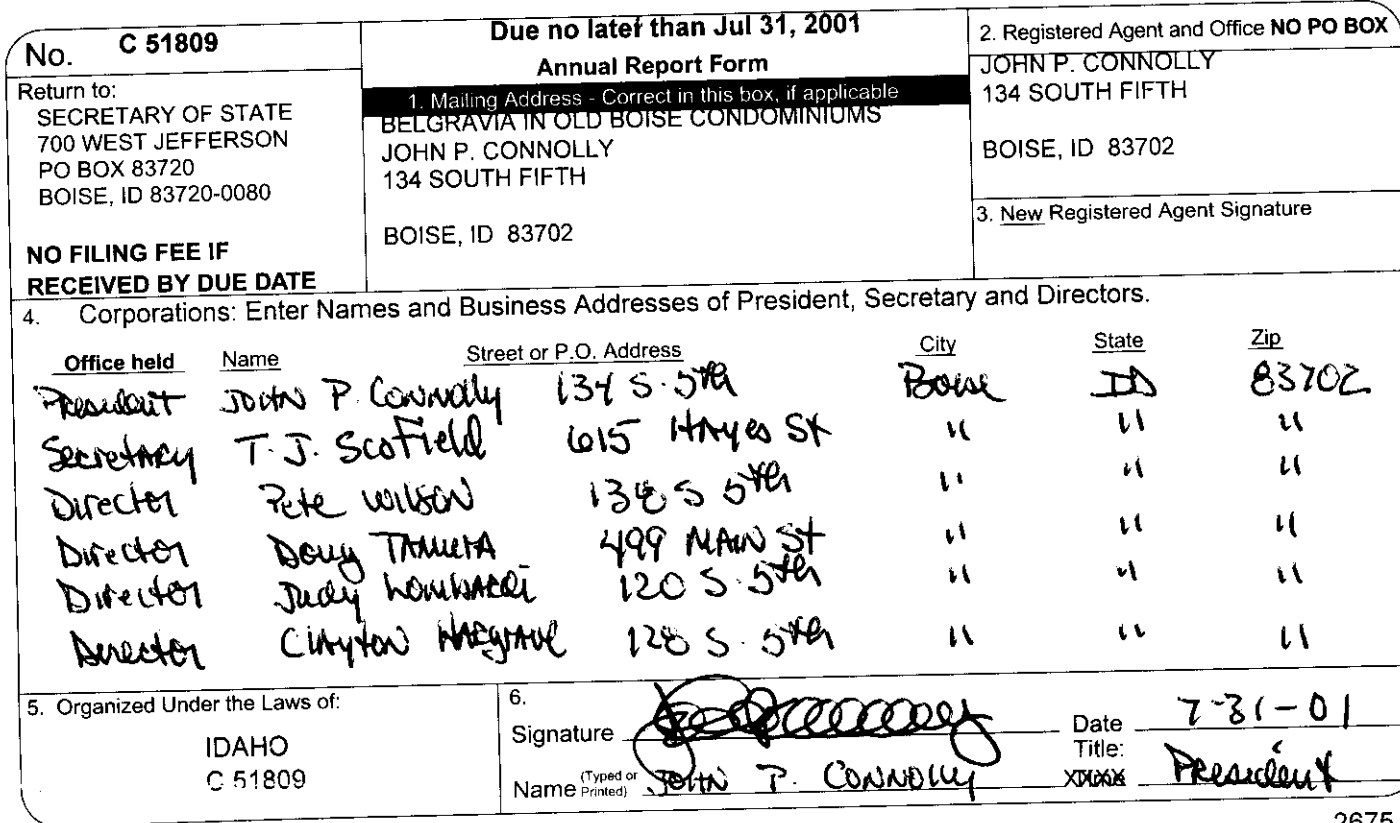 No. C 51809
Return to:
SECRETARY OF STATE
700 WEST JEFFERSON
PO BOX 83720
BOISE, ID 83720-0080
NO FILING FEE IF
RECEIVED BY DUE DATE
Due no later than Jul 31, 2001
Annual Report Form
1. Mailing Address - Correct in this box, if applicable
BELGRAVIA IN OLD BOISE CONDOMINIUMS
JOHN P. CONNOLLY
134 SOUTH FIFTH
BOISE, ID 83702
2. Registered Agent and Office NO PO BOX
JOHN P. CONNOLLY
134 SOUTH FIFTH
BOISE, ID 83702
3. New Registered Agent Signature
4. Corporations: Enter Names and Business Addresses of President, Secretary and Directors.
Office held Name Street or P.O. Address City State Zip
President JOHN P. Connolly 134 S. 5th Boise ID 83702
Secretary T. J. Scofield 615 Hayes St " " "
Director Pete Wilson S 5th " " "
Director Doug 499 MAIN St " " "
Director Judy Lombardi 120 S. 5th " " "
Director Clayton Hargrave 128 S. 5th " " "
5. Organized Under the Laws of:
IDAHO
C 51809
6.
Signature
Name (Typed or Printed) JOHN P. CONNOLLY
Date 7-31-01
Title: President
2675